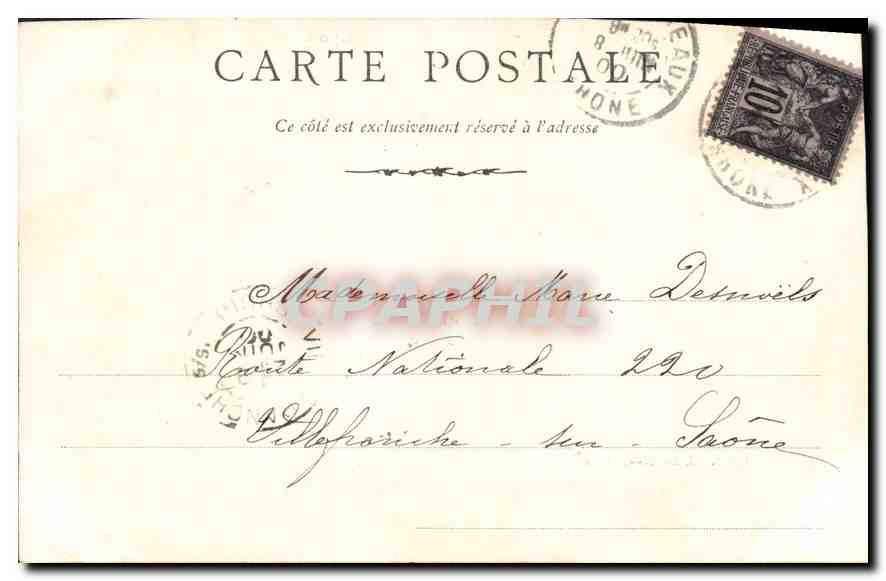 CARTE POSTALE
Ce côté est exclusivement réservé à l'adresse
EAUX
8
02
RHONE
10
POSTE
RHONE
CPAPHIL
Mademoiselle Marie Desnoëls
Route Nationale 220
Villefranche - sur - Saône
RHONE